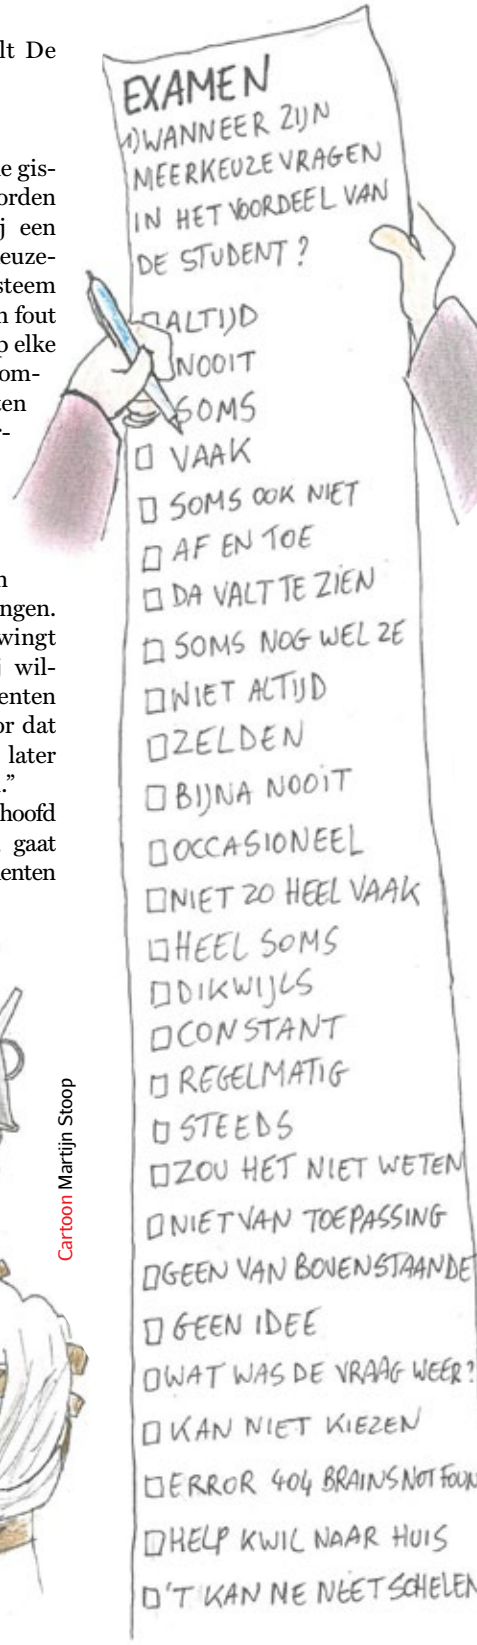 lt De
e gis-
orden
j een
euze-
steem
n fout
p elke
om-
ten
r-
n
ngen.
wingt
j wil-
enten
or dat
later
.”
hoofd
gaat
enten
Cartoon Martijn Stoop
EXAMEN
1) WANNEER ZIJN
MEERKEUZEVRAGEN
IN HET VOORDEEL VAN
DE STUDENT?
ALTIJD
NOOIT
SOMS
VAAK
SOMS OOK NIET
AF EN TOE
DA VALT TE ZIEN
SOMS NOG WEL ZE
NIET ALTIJD
ZELDEN
BIJNA NOOIT
OCCASIONEEL
NIET ZO HEEL VAAK
HEEL SOMS
DIKWIJLS
CONSTANT
REGELMATIG
STEEDS
ZOU HET NIET WETEN
NIET VAN TOEPASSING
GEEN VAN BOVENSTAANDE
GEEN IDEE
WAT WAS DE VRAAG WEER?
KAN NIET KIEZEN
ERROR 404 BRAINS NOT FOUN
HELP KWIL NAAR HUIS
'T KAN ME NEET SCHELEN